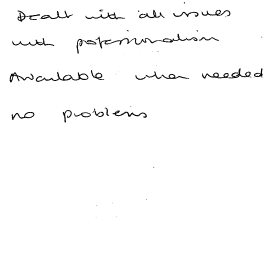 Dealt with all issues
with professionalism
Available when needed
no problems